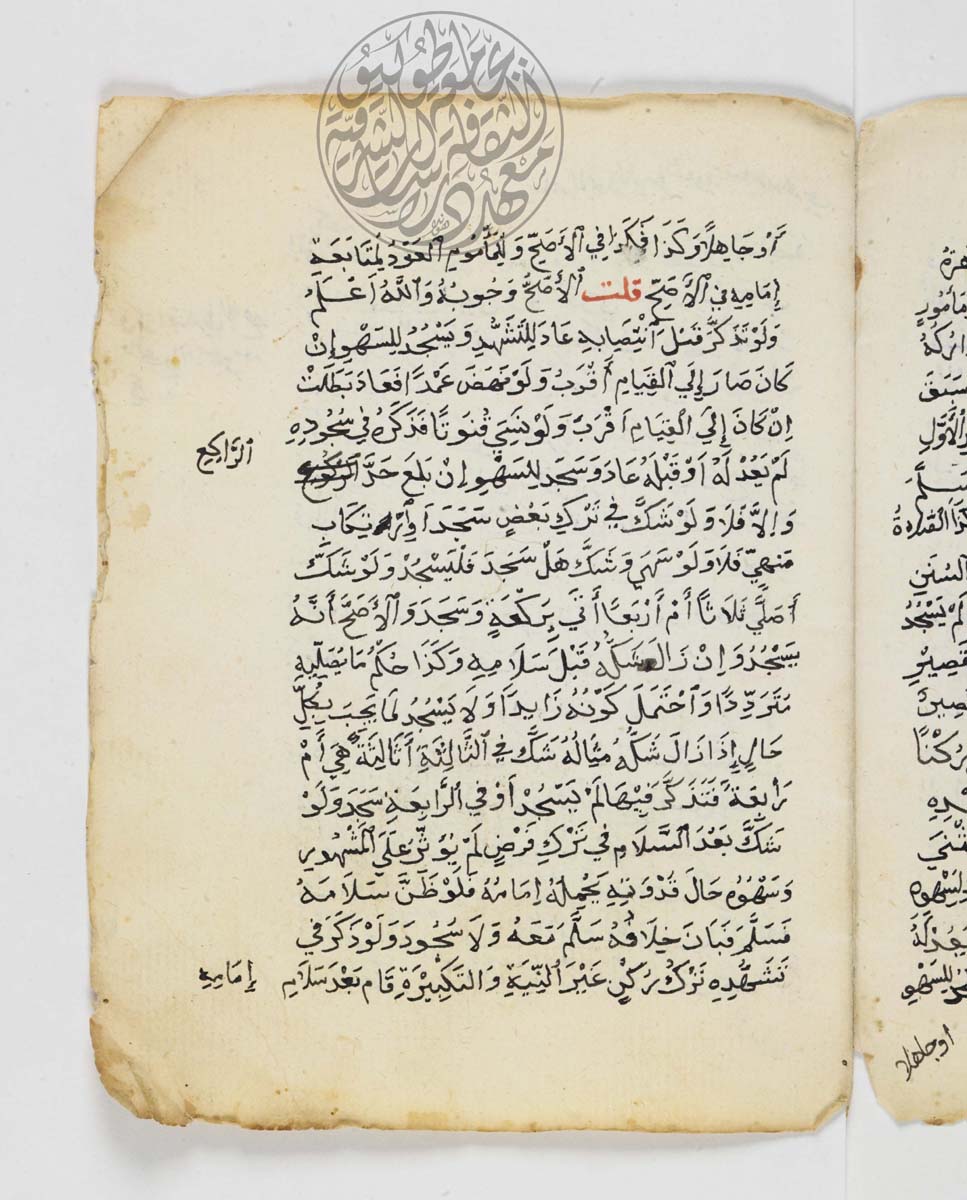 أَوْ جَاهِلًا وَكَذَا فِي الْأَصَحِّ وَلِلْمَأْمُومِ الْعَوْدُ لِمُتَابَعَةِ
إِمَامِهِ فِي الْأَصَحِّ قلت الْأَصَحُّ وُجُوبُهُ وَاللَّهُ أَعْلَمُ
وَلَوْ تَذَكَّرَ قَبْلَ انْتِصَابِهِ عَادَ لِلتَّشَهُّدِ وَيَسْجُدُ لِلسَّهْوِ إِنْ
كَانَ صَارَ إِلَى الْقِيَامِ أَقْرَبُ وَلَوْ نَهَضَ عَمْدًا فَعَادَ بَطَلَتْ
إِنْ كَانَ إِلَى الْقِيَامِ أَقْرَبَ وَلَوْ نَسِيَ قُنُوتًا فَذَكَرَهُ فِي سُجُودِهِ
لَمْ يَعُدْ لَهُ أَوْ قَبْلَهُ عَادَ وَسَجَدَ لِلسَّهْوِ إِنْ بَلَغَ حَدَّ
الرَّاكِعِ
وَإِلَّا فَلَا وَلَوْ شَكَّ فِي تَرْكِ بَعْضٍ سَجَدَ أَوِ ارْتِكَابِ
مَنْهِيٍّ فَلَا وَلَوْ سَهَى وَشَكَّ هَلْ سَجَدَ فَلْيَسْجُدْ وَلَوْ شَكَّ
أَصَلَّى ثَلَاثًا أَمْ أَرْبَعًا أَتَى بِرَكْعَةٍ وَسَجَدَ وَالْأَصَحُّ أَنَّهُ
يَسْجُدُ وَإِنْ زَالَ شَكُّهُ قَبْلَ سَلَامِهِ وَكَذَا حُكْمُ مَا يُصَلِّيهِ
مُتَرَدِّدًا وَاحْتَمَلَ كَوْنُهُ زَايِدًا وَلَا يَسْجُدُ لِمَا يَجِبُ بِكُلِّ
حَالٍ إِذَا زَالَ شَكُّهُ مِثَالُهُ شَكَّ فِي الثَّالِثَةِ أَثَالِثَةٌ هِيَ أَمْ
رَابِعَةٌ فَتَذَكَّرَ فِيهَا لَمْ يَسْجُدْ أَوْ فِي الرَّابِعَةِ سَجَدَ وَلَوْ
شَكَّ بَعْدَ السَّلَامِ فِي تَرْكِ فَرْضٍ لَمْ يُؤَثِّرْ عَلَى الْمَشْهُورِ
وَسَهْوُهُ حَالَ قُدْوَتِهِ يَحْمِلُهُ إِمَامُهُ فَلَوْ ظَنَّ سَلَامَهُ
فَسَلَّمَ فَبَانَ خِلَافُهُ سَلَّمَ مَعَهُ وَلَا سُجُودَ وَلَوْ ذَكَرَ فِي
تَشَهُّدِهِ تَرْكَ رُكْنٍ غَيْرَ النِّيَّةِ وَالتَّكْبِيرَةِ قَامَ بَعْدَ سَلَامِ
إِمَامِهِ
أو جاهلا